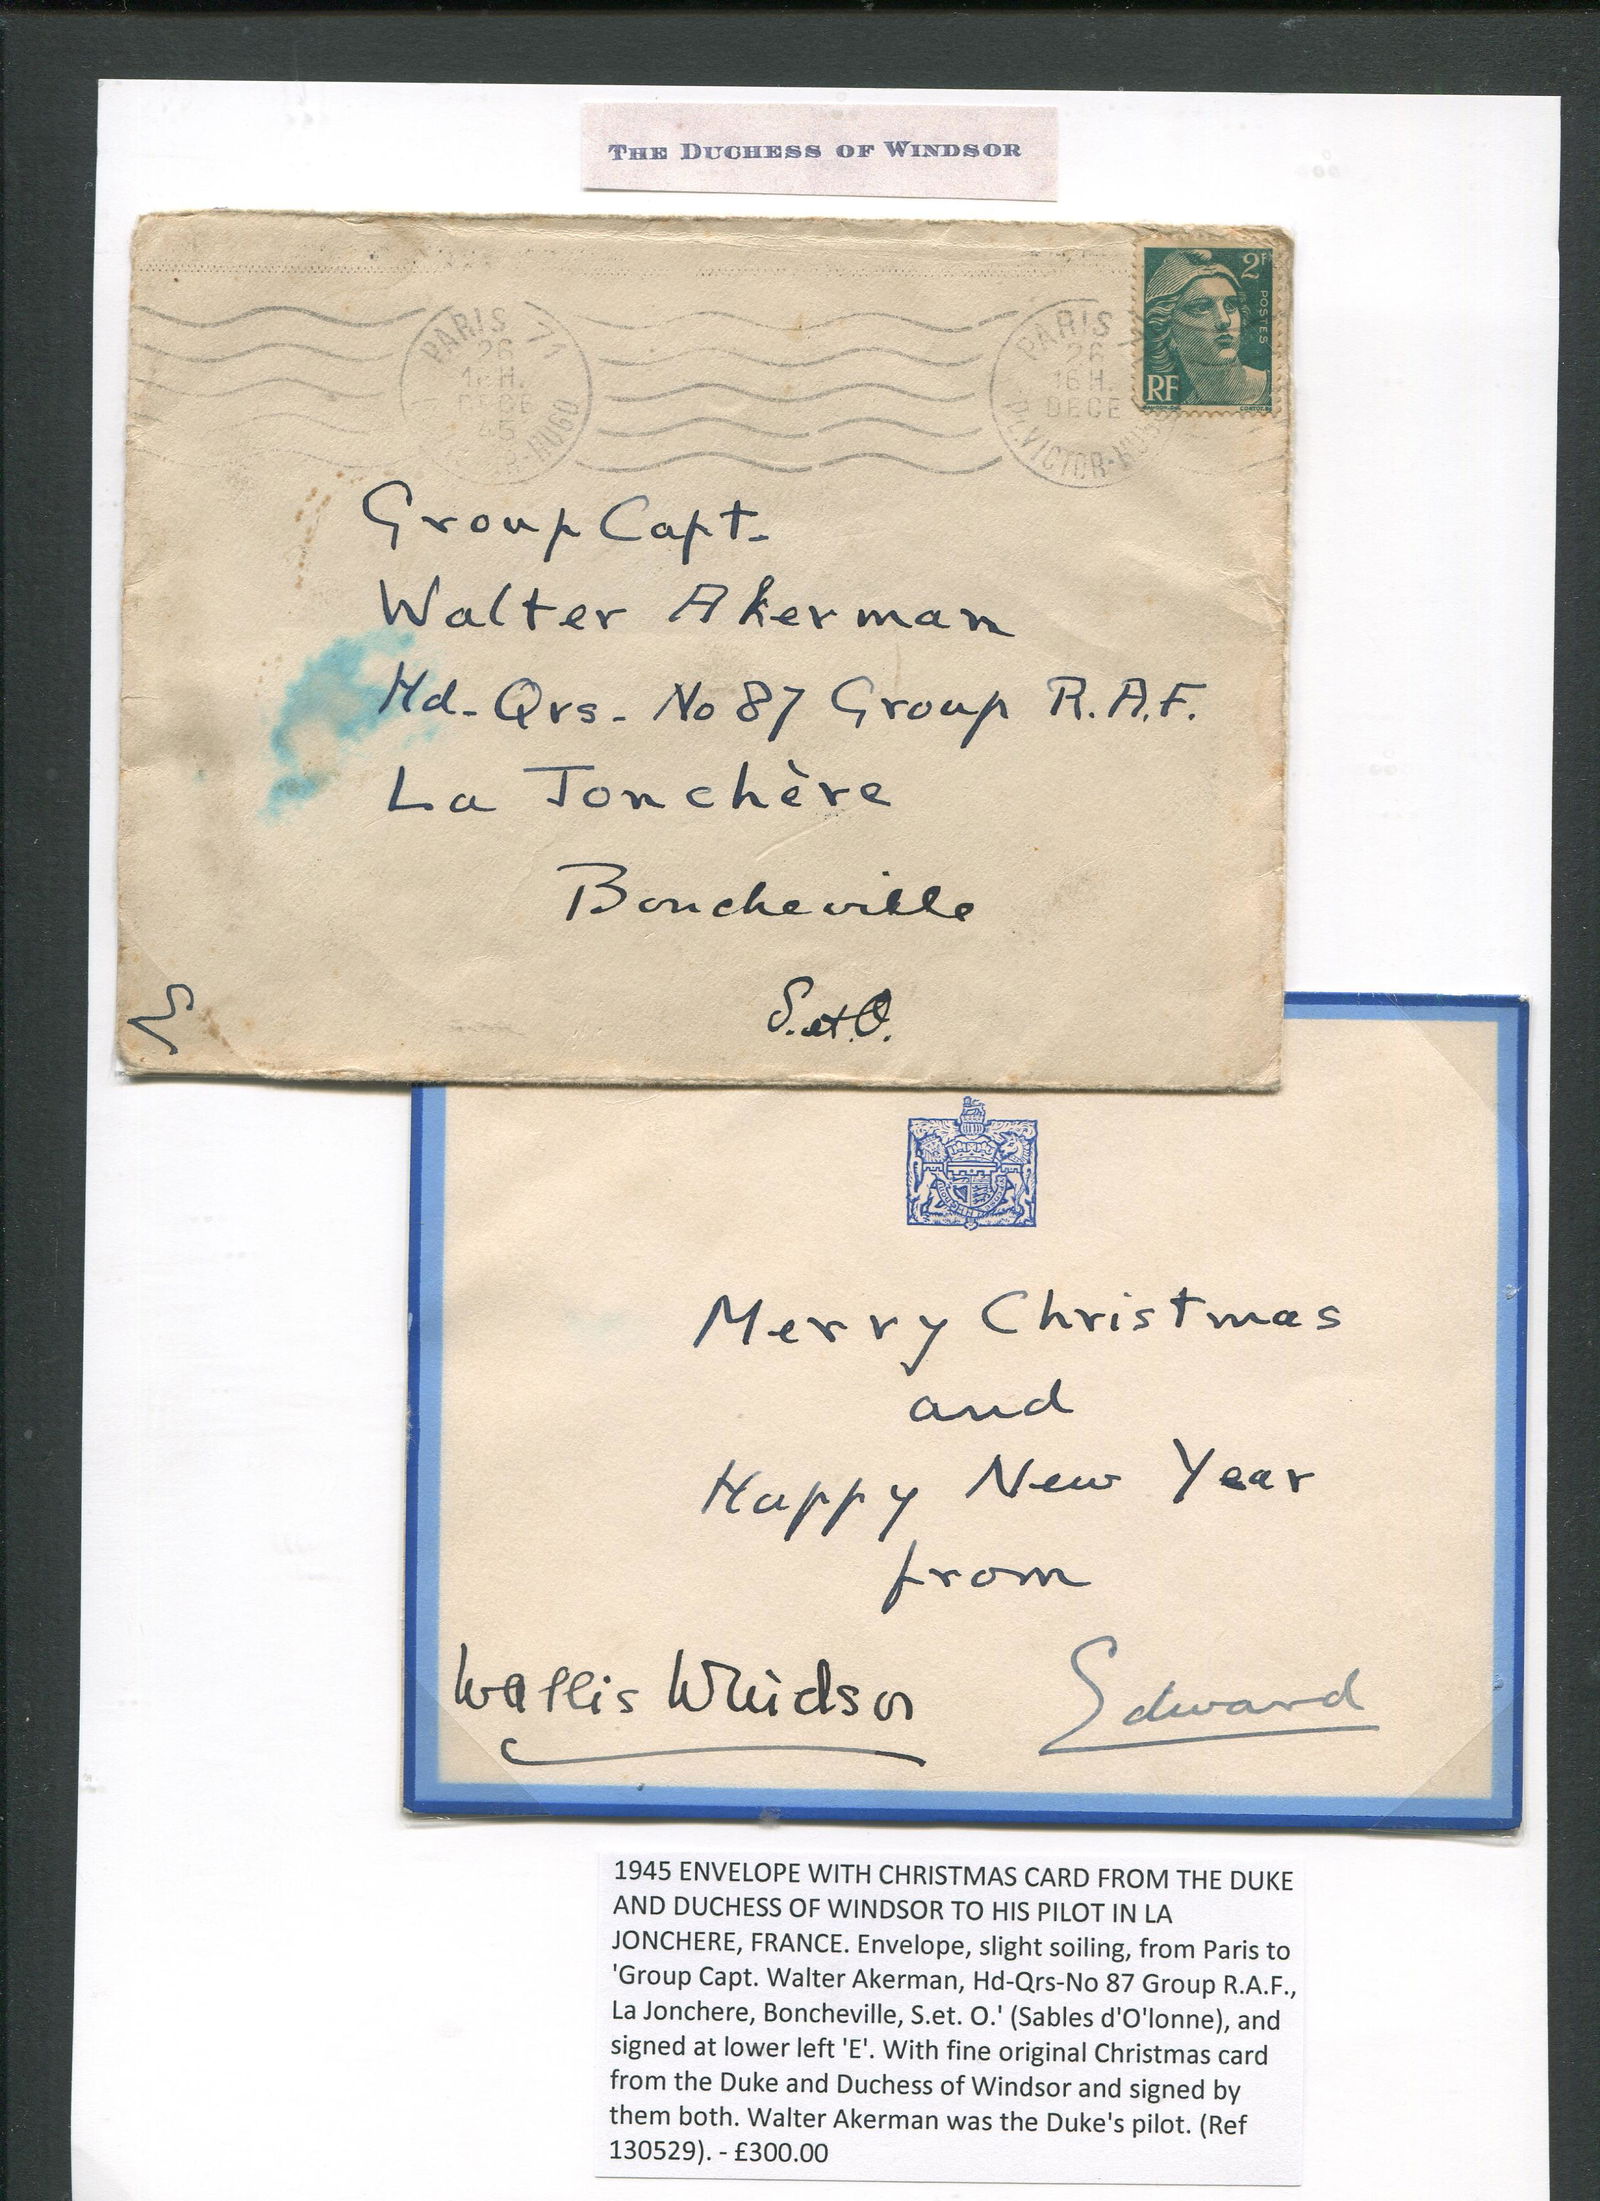 THE DUCHESS OF WINDSOR
2F
POSTES
RF
PARIS
26
H.
DECE
45
R-HUGO
PARIS
26
16 H.
DECE
VICTOR-HUGO
Group Capt.
Walter Akerman
Hd-Qrs- No 87 Group R.A.F.
La Jonchère
Boncheville
S.et.O.
E
Merry Christmas
and
Happy New Year
from
Wallis Windsor
Edward
1945 ENVELOPE WITH CHRISTMAS CARD FROM THE DUKE
AND DUCHESS OF WINDSOR TO HIS PILOT IN LA
JONCHERE, FRANCE. Envelope, slight soiling, from Paris to
'Group Capt. Walter Akerman, Hd-Qrs-No 87 Group R.A.F.,
La Jonchere, Boncheville, S.et. O.' (Sables d'O'lonne), and
signed at lower left 'E'. With fine original Christmas card
from the Duke and Duchess of Windsor and signed by
them both. Walter Akerman was the Duke's pilot. (Ref
130529). - £300.00